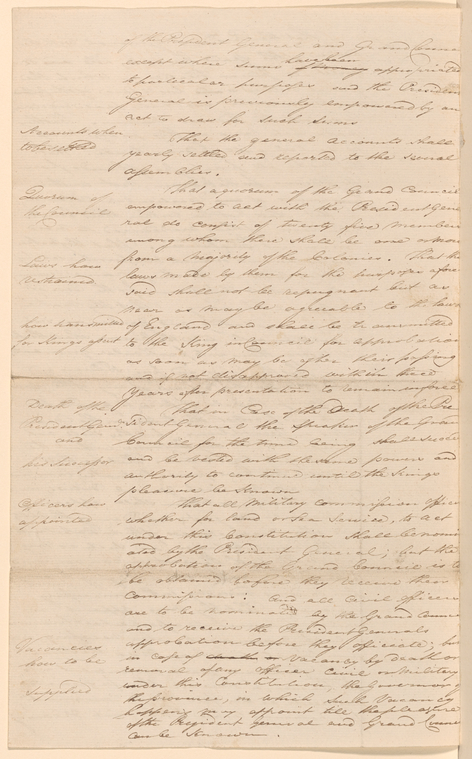 of the President General and Grand Council
except where sums have been appropriated
to particular purposes and the President
General is previously empowered by an
act to draw for such Sums
Accounts when
to be settled
That the general accounts shall
yearly settled and reported to the several
assemblies.
Quorum of
the Council
That a quorum of the Grand Council
empowered to act with the President Gene
ral do consist of twenty five members
among whom there shall be one or more
from a majority of the Colonies. That the
Laws how
restrained
laws made by them for the purposes afore
said shall not be repugnant but as
near as may be agreeable to the laws
how transmitted
for Kings assent
of England and shall be transmitted
to the King in Council for approbation
as soon as may be after their passing
and if not disapproved within three
years after presentation to remain in force
Death of the
President Genl
and
his Successor
That in Case of the Death of the Pre
sident General the Speaker of the Grand
Council for the time being shall succeed
and be vested with the same powers and
authority to continue until the Kings
pleasure be Known
Officers how
appointed
That all Military commission officers
whether for land or sea service, to act
under this Constitution shall be nomi
nated by the President General; but the
approbation of the Grand Council is to
be obtained before they receive their
Commissions: And all Civil officers
are to be nominated by the Grand Council
and to receive the President Generals
approbation before they officiate; but
Vacancies
how to be
Supplied
in case of Vacancy by death or
removal of any officer Civil or Military
under this Constitution, the Governor of
the province, in which such Vacancy
happens may appoint till the pleasure
of the President General and Grand Council
can be Known